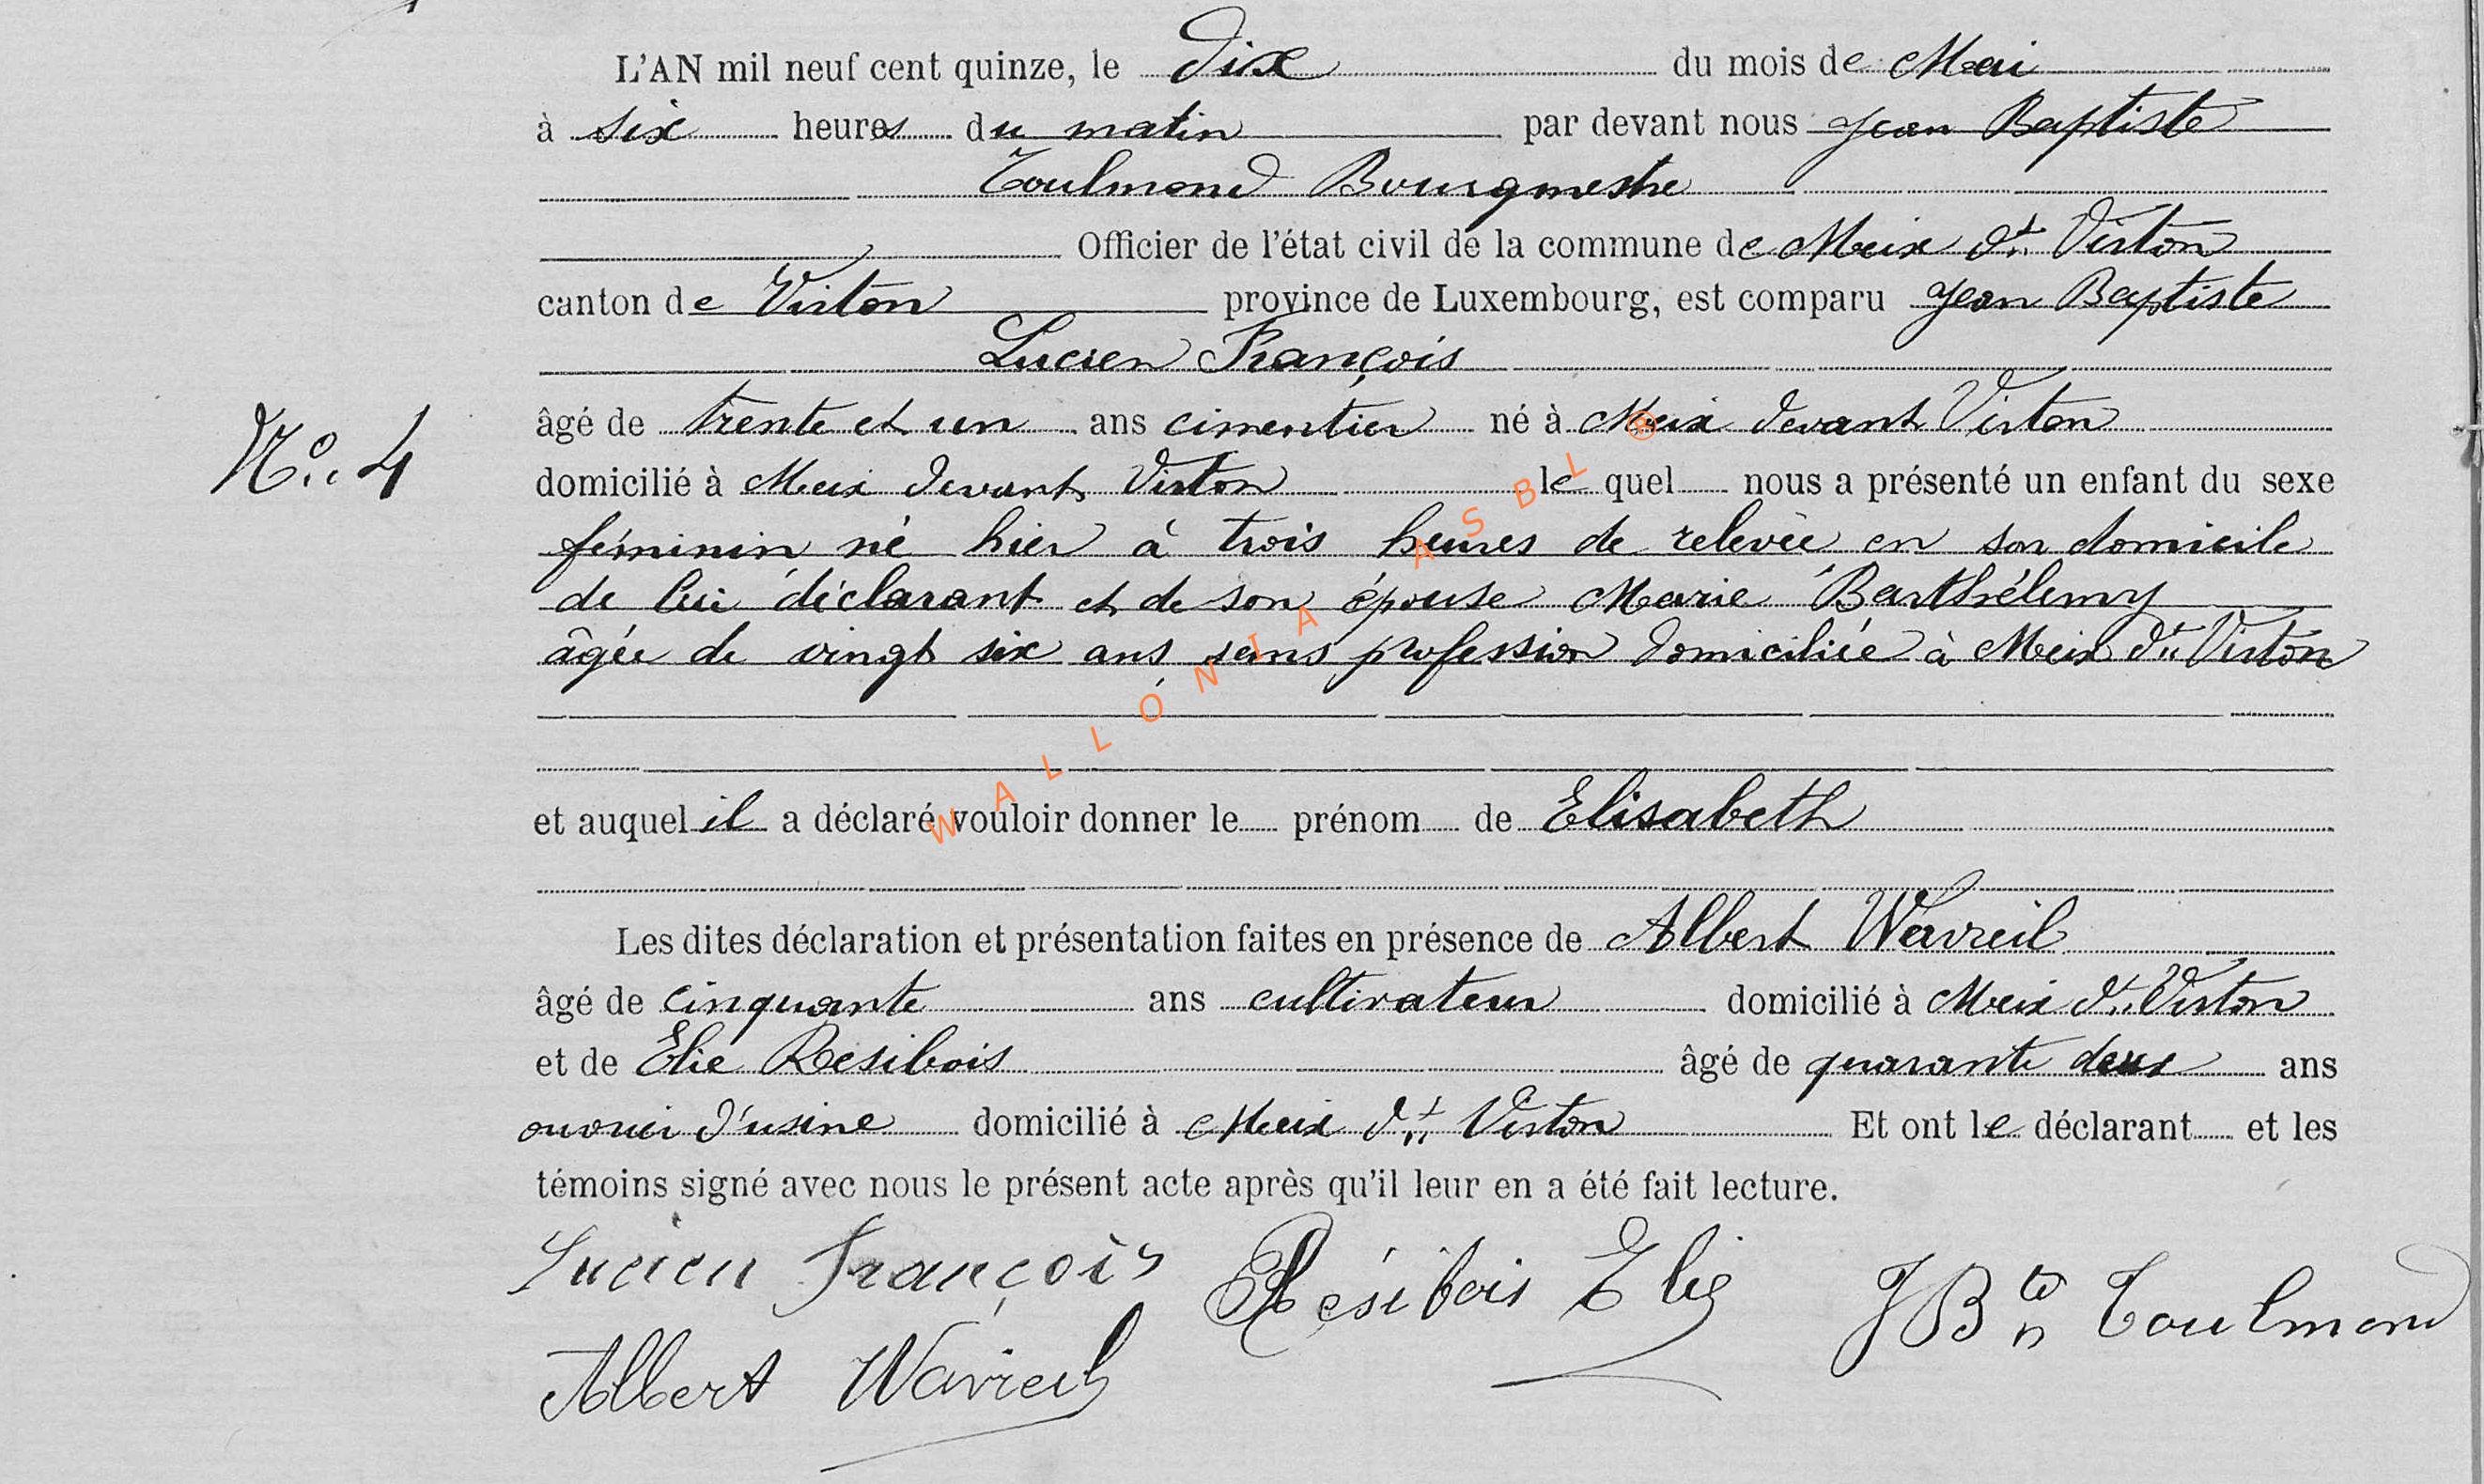 L'AN mil neuf cent quinze, le dix du mois de Mai
à six heures du matin par devant nous Jean Baptiste
Toulmond Bourgmestre
Officier de l'état civil de la commune de Meix dt Virton
canton de Virton province de Luxembourg, est comparu Jean Baptiste
Lucien François
âgé de trente et un ans cimentier né à Meix devant Virton
No. 4
domicilié à Meix devant Virton lequel nous a présenté un enfant du sexe
féminin né hier à trois heures de relevée en son domicile
de lui déclarant et de son épouse Marie Barthélemy
âgée de vingt six ans, sans profession domiciliée à Meix dt Virton
et auquel il a déclaré vouloir donner le prénom de Elisabeth
Les dites déclaration et présentation faites en présence de Albert Wavreil
âgé de cinquante ans cultivateur domicilié à Meix dt Virton
et de Elie Resibois âgé de quarante deux ans
ouvrier d'usine domicilié à Meix dt Virton Et ont le déclarant et les
témoins signé avec nous le présent acte après qu'il leur en a été fait lecture.
Lucien François Résibois Elie JBte Toulmond
Albert Wavreil
WALLONIA ASBL ®